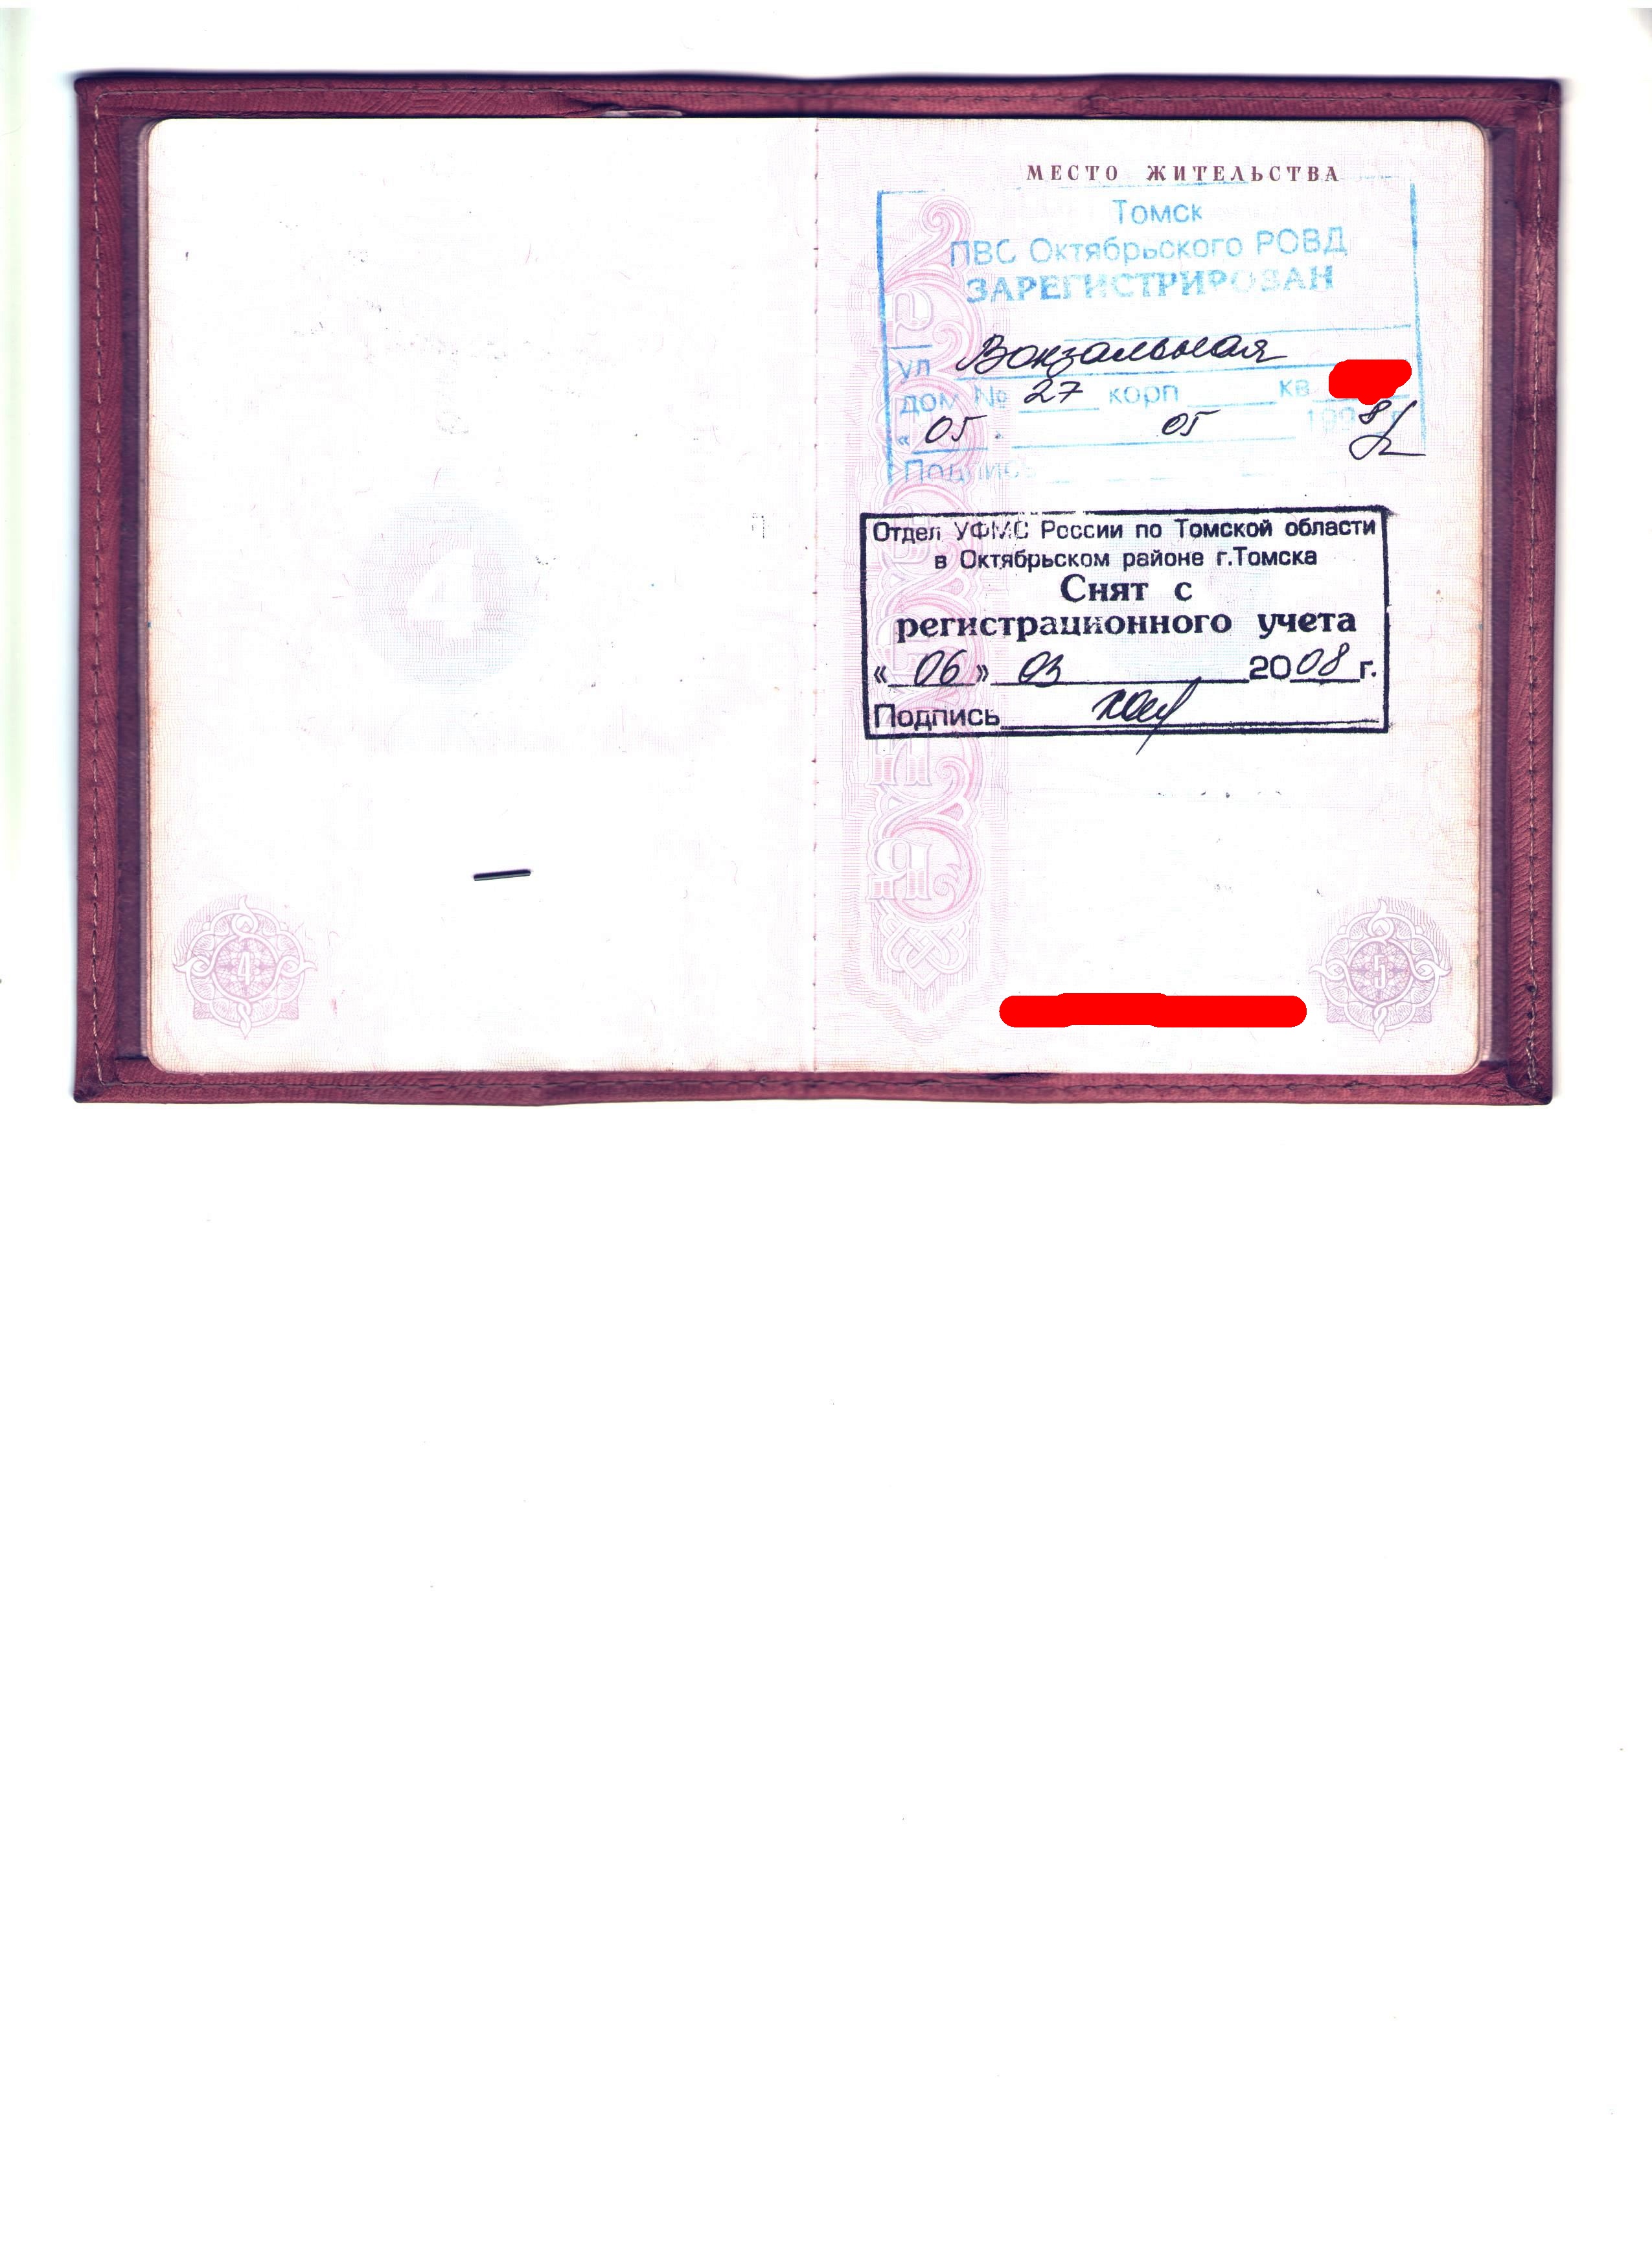 МЕСТО ЖИТЕЛЬСТВА
Томск
ПВС Октябрьского РОВД
ЗАРЕГИСТРИРОВАН
ул Вокзальная
дом № 27 корп кв
« 05 » 05 1998 г.
Подпись
Отдел УФМС России по Томской области
в Октябрьском районе г.Томска
Снят с
регистрационного учета
« 06 » 03 2008 г.
Подпись
РОССИЯ
4
4
5